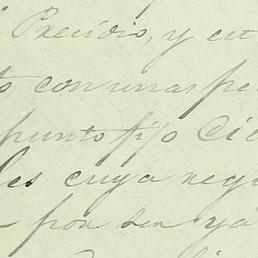 Precidio, y en
con unas pe
punto fijo
les cuya negr
por ser ya